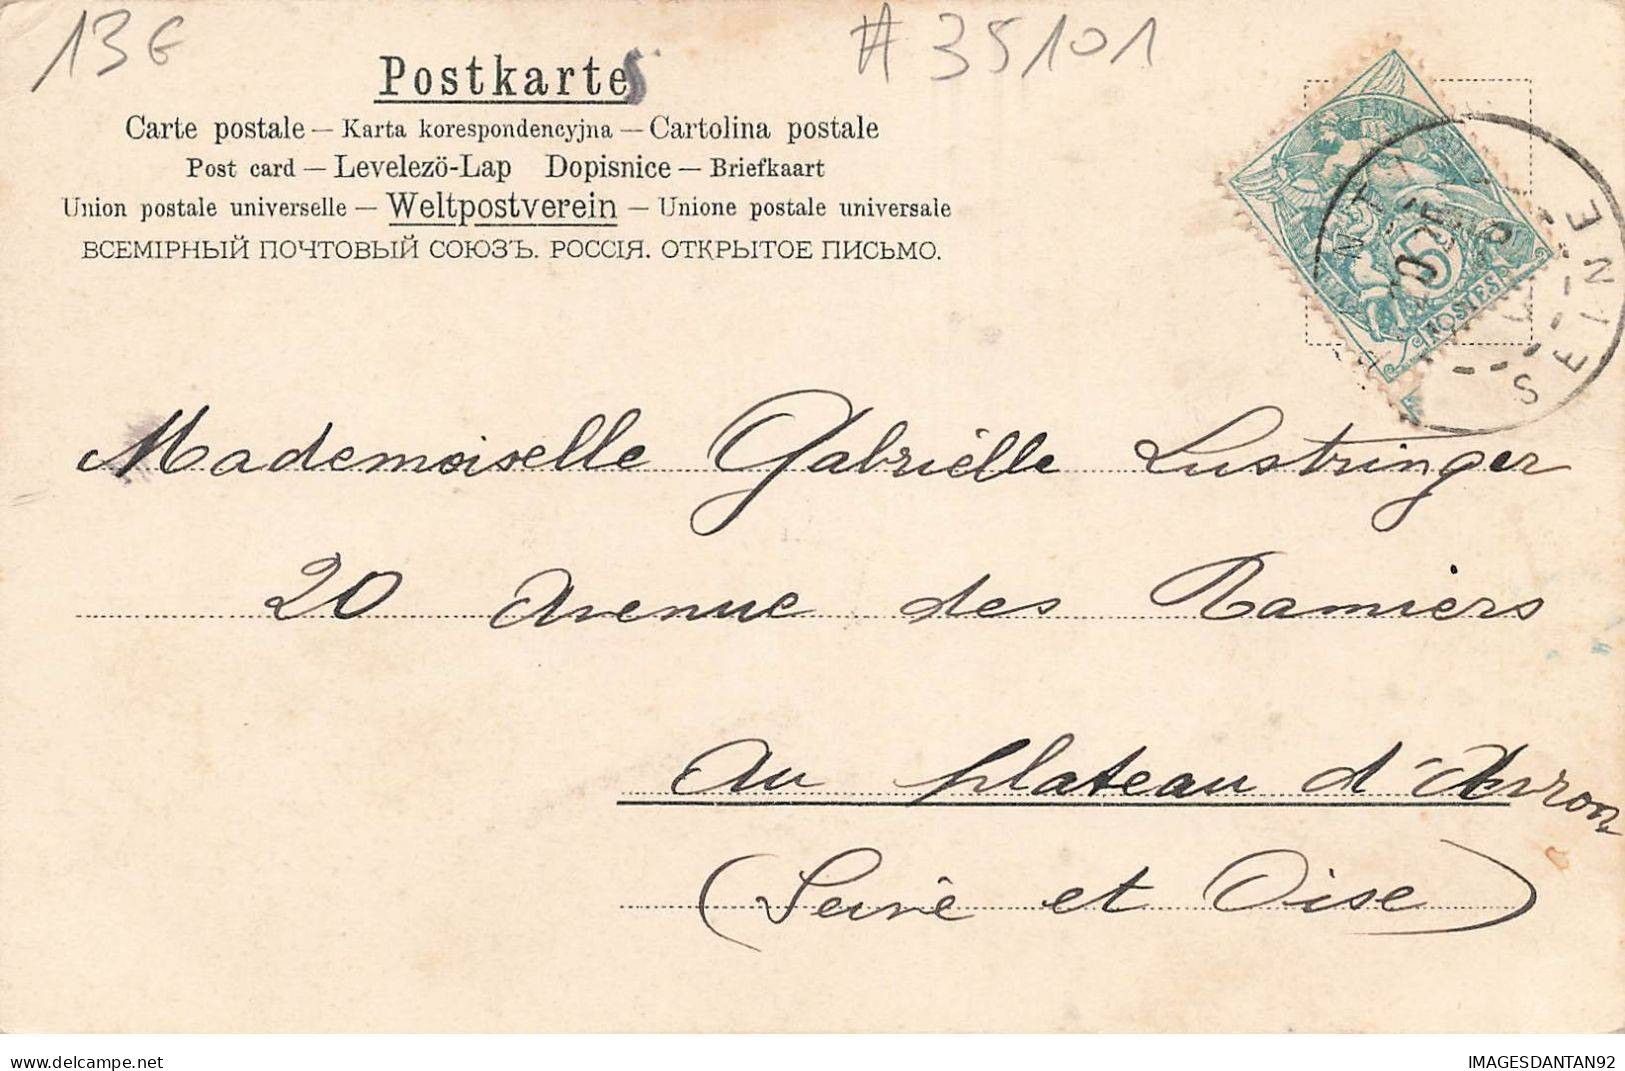 13€
# 35101
Postkarte
Carte postale — Karta korespondencyjna — Cartolina postale
Post card — Levelezö-Lap Dopisnice — Briefkaart
Union postale universelle — Weltpostverein — Unione postale universale
ВСЕМІРНЫЙ ПОЧТОВЫЙ СОЮЗЪ. РОССІЯ. ОТКРЫТОЕ ПИСЬМО.
5
POSTES
SEINE
Mademoiselle Gabrielle Lustringer
20 Avenue des Ramiers
Au plateau d'Avron
(Seine et Oise)
www.delcampe.net
IMAGESDANTAN92